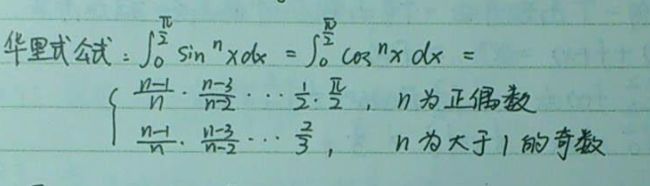 华里式公式：∫₀^(π/2) sinⁿxdx = ∫₀^(π/2) cosⁿx dx =
{ (n-1)/n · (n-3)/(n-2) ··· 1/2 · π/2 ， n为正偶数
(n-1)/n · (n-3)/(n-2) ··· 2/3 ， n为大于1的奇数